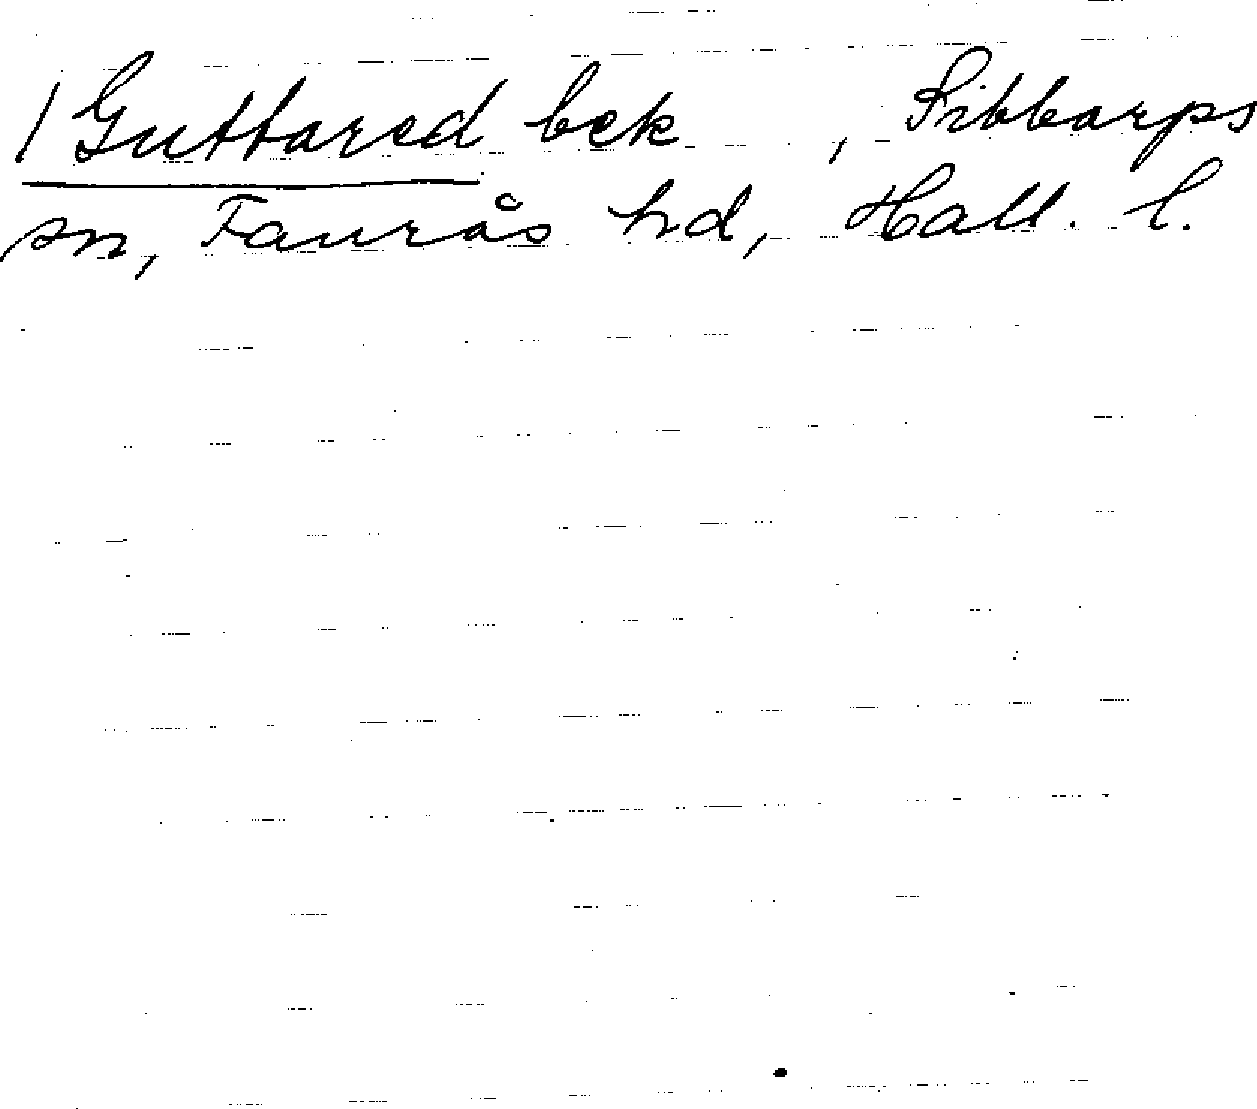 / Guttared bek , Sibbarps
sn, Faurås hd, Hall. l.